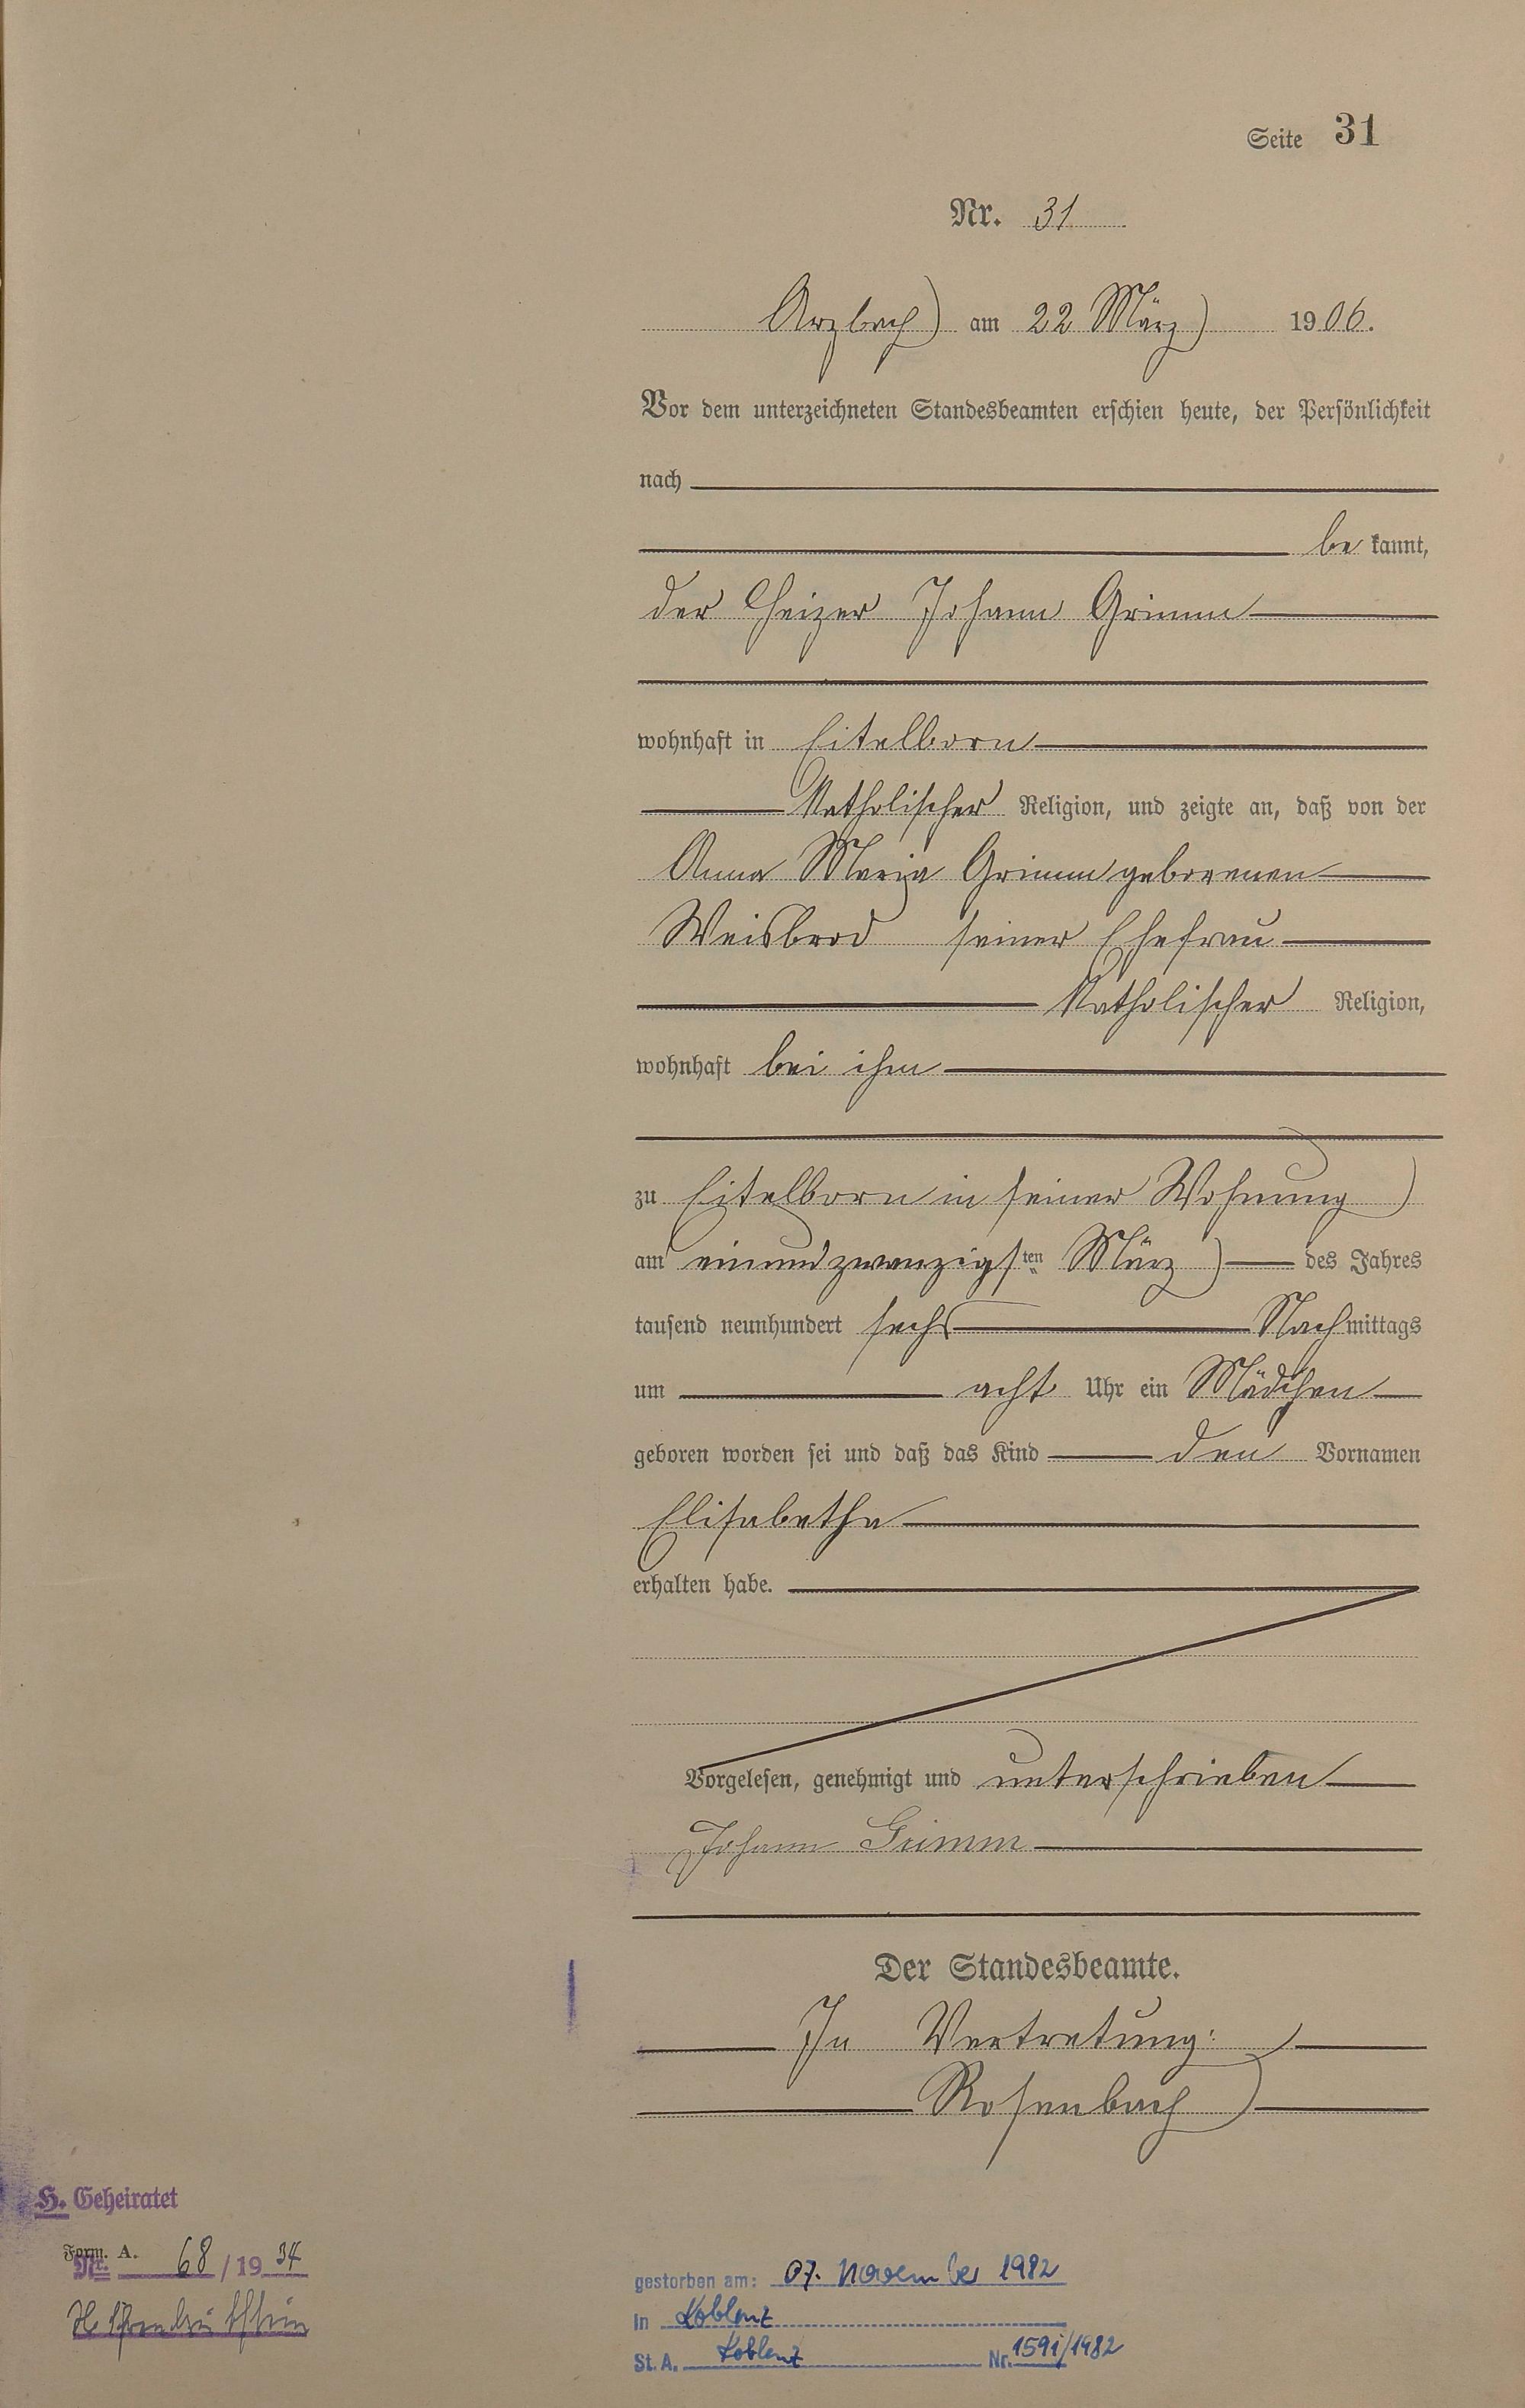 Seite 31
Nr. 31
Arzbach am 22 März 1906.
Vor dem unterzeichneten Standesbeamten erschien heute, der Persönlichkeit
nach
be kannt,
der Heizer Johann Grimm
wohnhaft in Eitelborn
Katholischer Religion, und zeigte an, daß von der
Anna Maria Grimm geborenen
Weisbrod seiner Ehefrau
Katholischer Religion,
wohnhaft bei ihm
zu Eitelborn in seiner Wohnung
am einundzwanzigsten März des Jahres
tausend neunhundert sechs Nachmittags
um acht Uhr ein Mädchen
geboren worden sei und daß das Kind den Vornamen
Elisabetha
erhalten habe.
Vorgelesen, genehmigt und unterschrieben
Johann Grimm
Der Standesbeamte.
In Vertretung:
Rosenbach
H. Geheiratet
Form. A.
Nr. 68/1934
gestorben am: 07. November 1982
in Koblenz
St. A. Koblenz Nr. 1591/1982